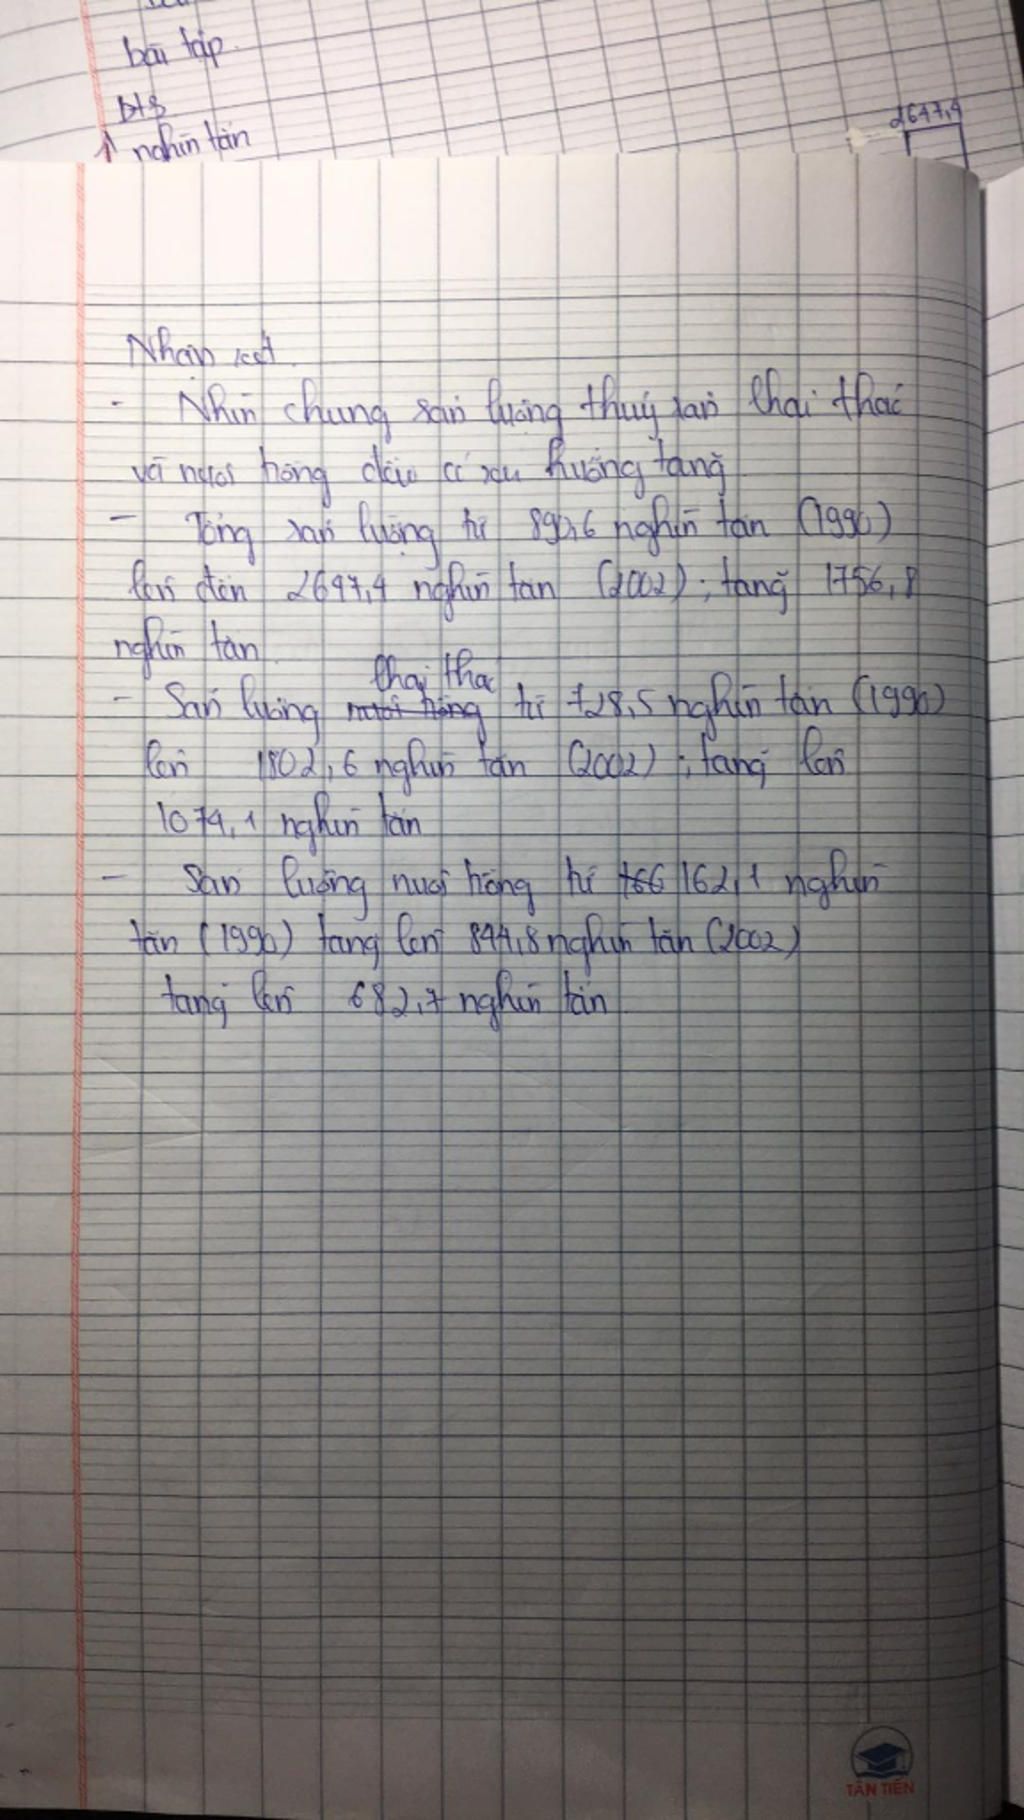 bài tập
bt3
nghìn tấn
2647,4
Nhận xét
- Nhìn chung sản lượng thuỷ sản khai thác
và nuôi trồng đều có xu hướng tăng
- Tổng sản lượng từ 890,6 nghìn tấn (1990)
lên đến 2647,4 nghìn tấn (2002); tăng 1756,8
nghìn tấn
khai thác
- Sản lượng nuôi trồng từ 728,5 nghìn tấn (1990)
lên 1802,6 nghìn tấn (2002); tăng lên
1074,1 nghìn tấn
- Sản lượng nuôi trồng từ 162,1 nghìn
tấn (1990) tăng lên 844,8 nghìn tấn (2002)
tăng lên 682,7 nghìn tấn
TÂN TIẾN